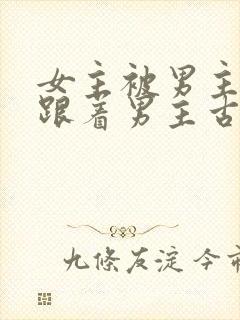 女主被男主
跟着男主古
九條友淀 今市